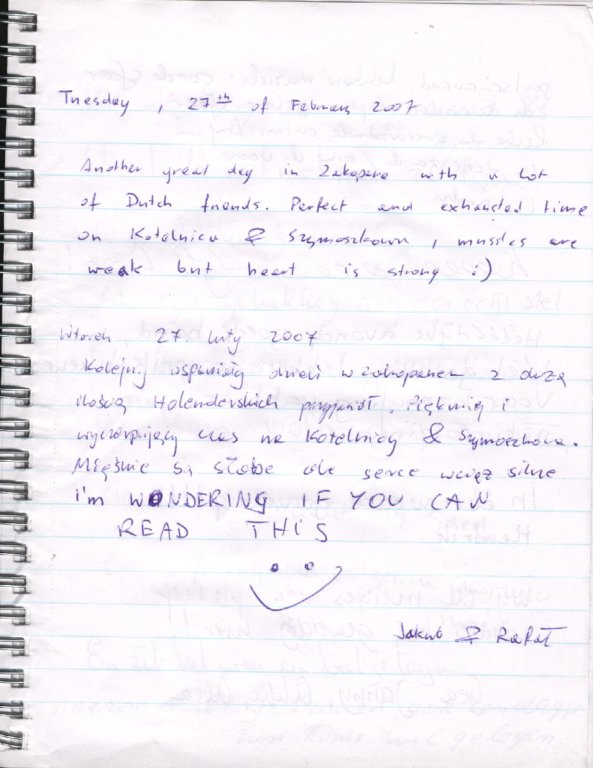 Tuesday, 27th of February 2007
Another great day in Zakopane with a lot
of Dutch friends. Perfect and exhausted time
on Kotelnica & Szymoszkowa, muscles are
weak but heart is strong :)
Wtorek 27 luty 2007
Kolejny wspaniały dzień w Zakopanem z dużą
ilością Holenderskich przyjaciół. Piękny i
wyczerpujący czas na Kotelnicy & Szymoszkowa.
Mięśnie są słabe ale serce wciąż silne
i'm WONDERING IF YOU CAN
READ THIS
Jakub & Rafał